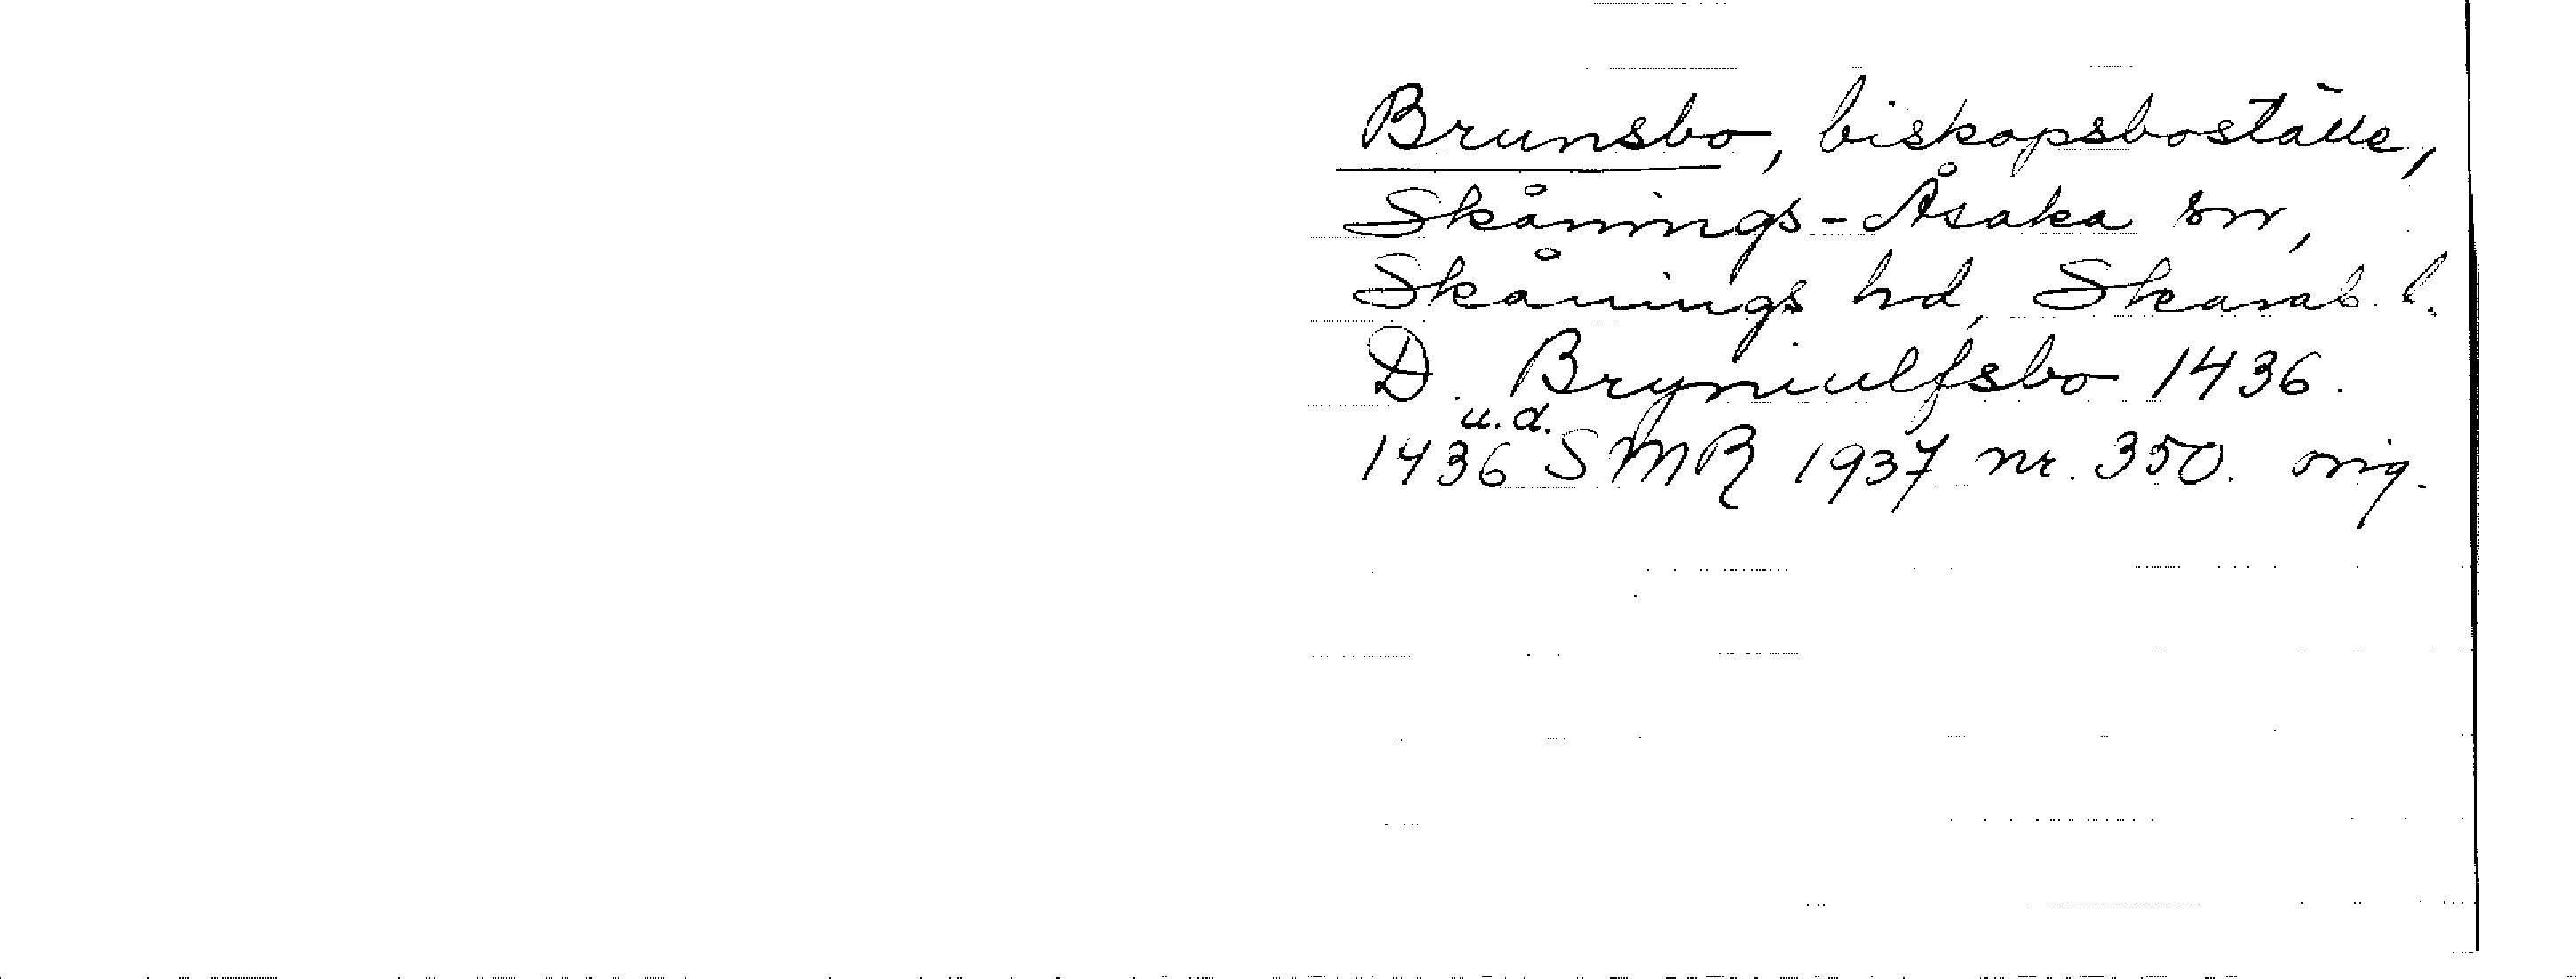 Brunsbo, biskopsboställe,
Skånings-Åsaka sn,
Skånings hd, Skarab. l.
D. Bryniulfsbo 1436.
u.d.
1436 SMR 1937 nr. 350. orig.